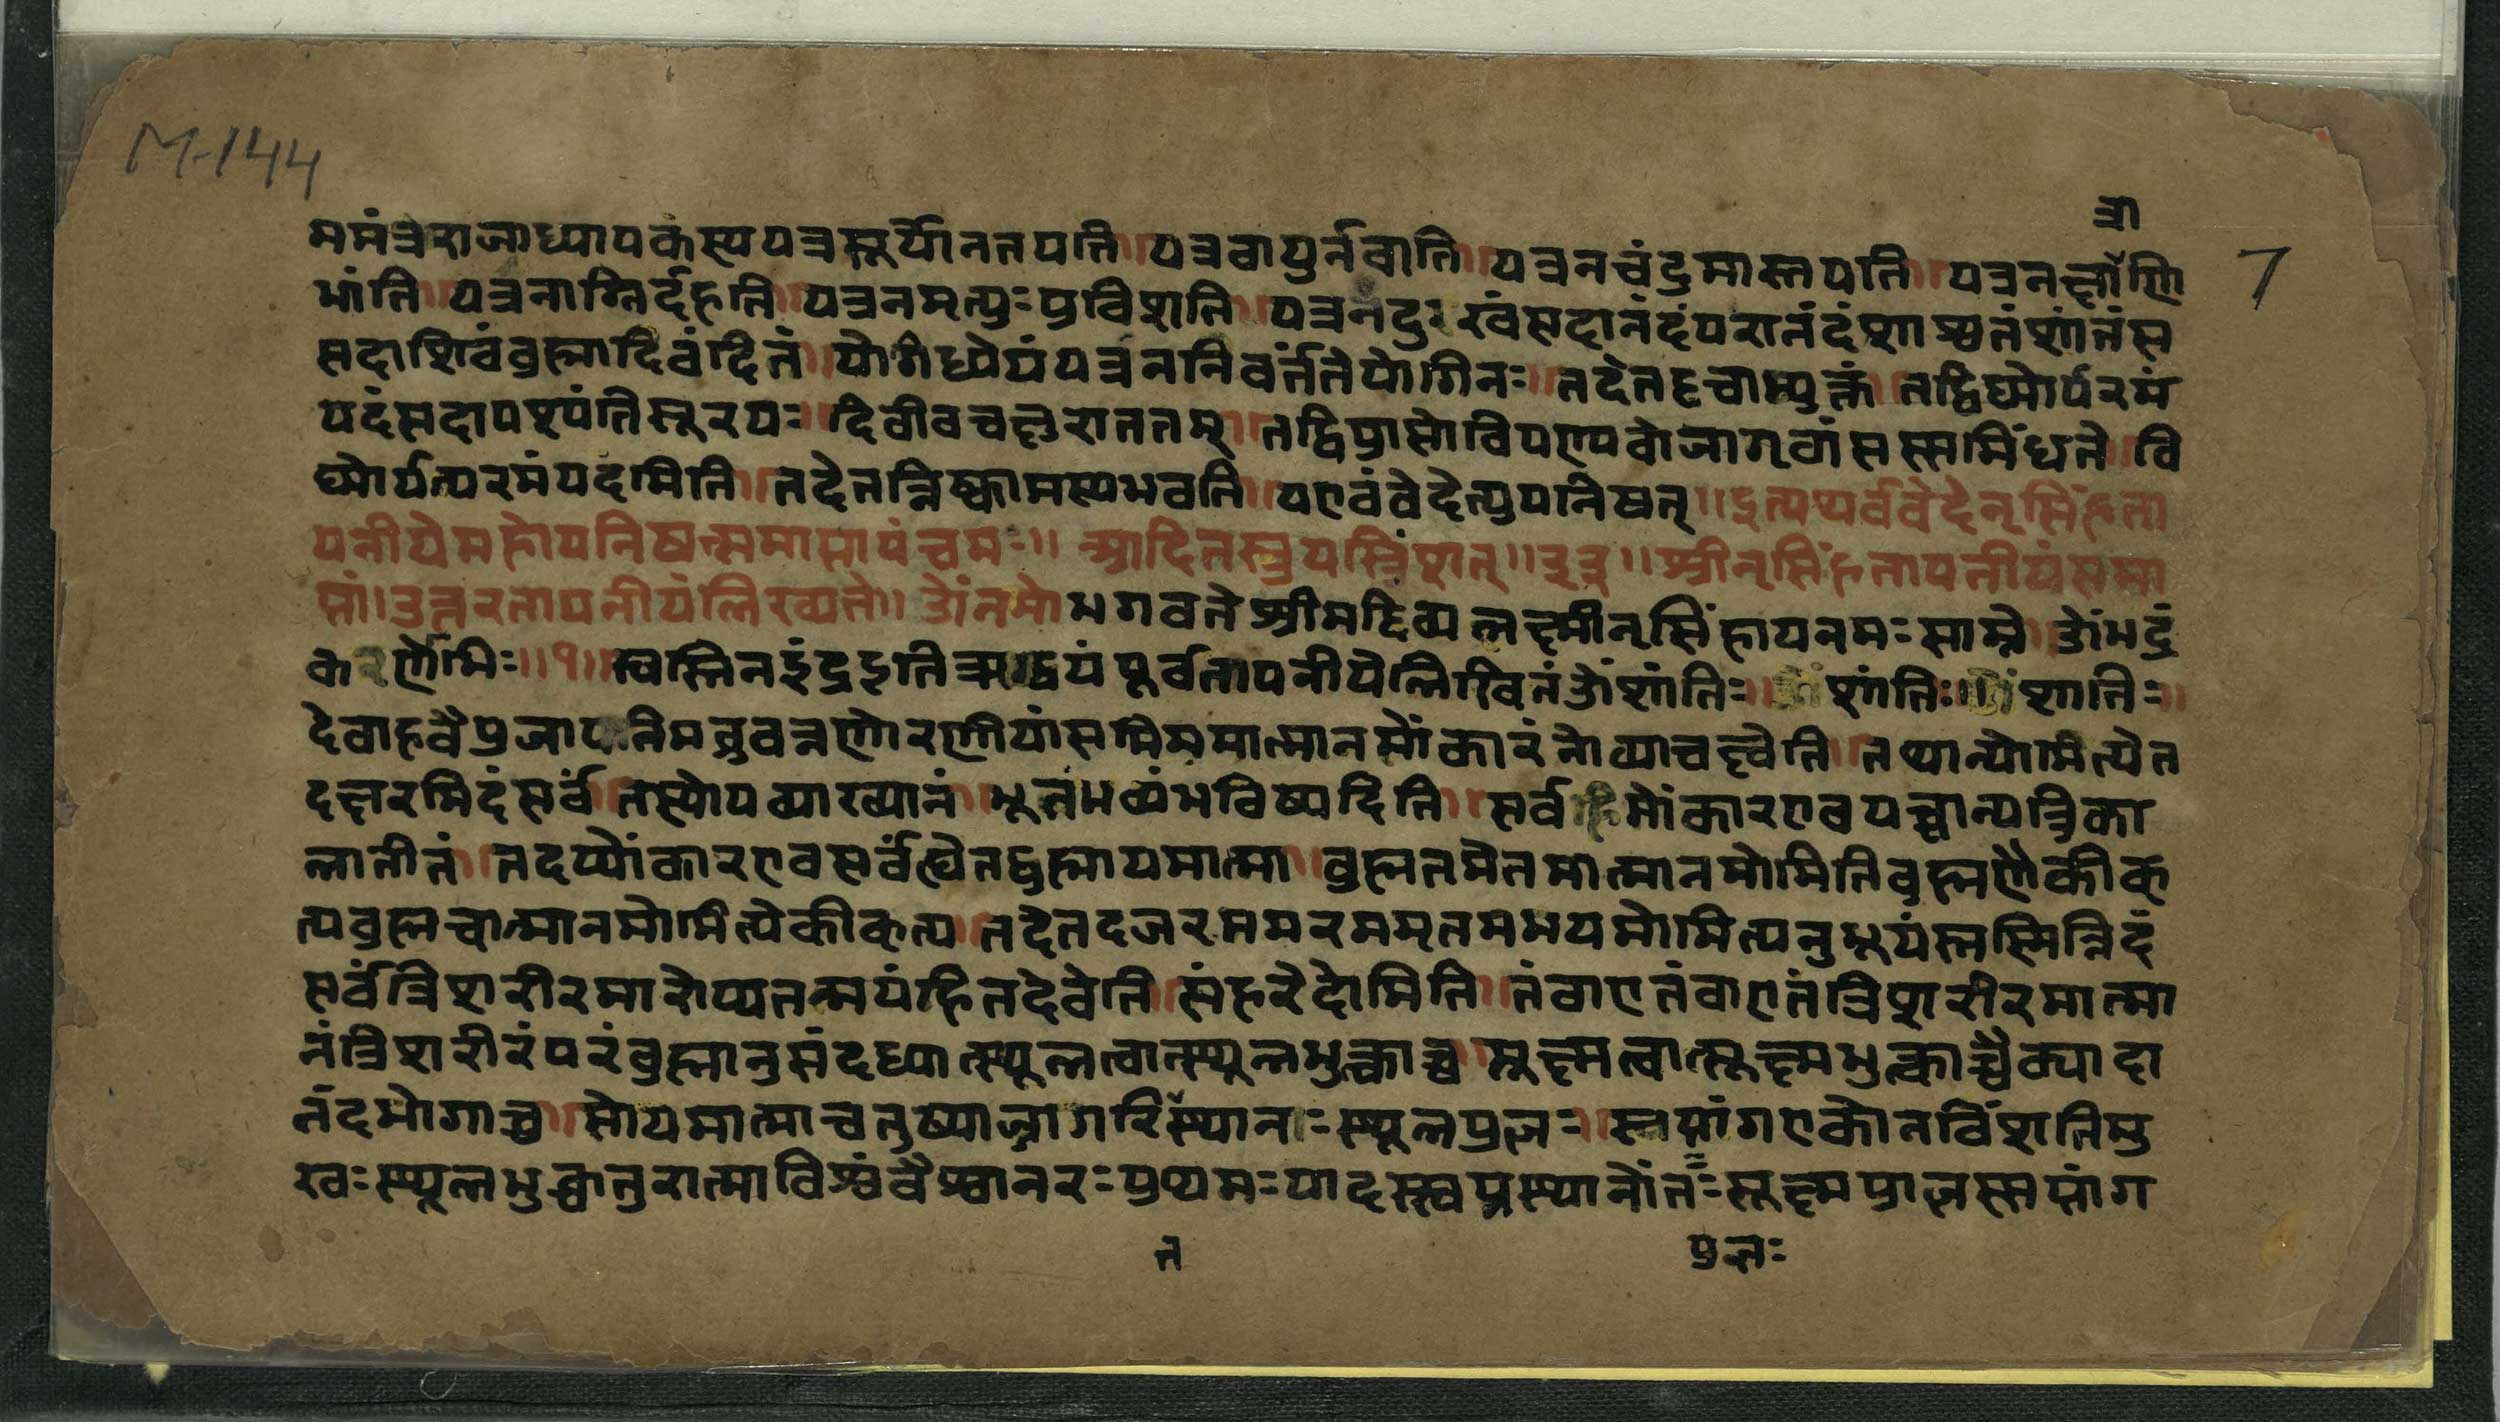 M-144
त्रा
7
ममंत्रराजाध्यापकस्ययत्रसूर्योनतपति॥यत्रवायुर्नवाति॥यत्रनचंद्रमास्तपति॥यत्रनक्षाणि
भांति॥यत्रनाग्निर्दहति॥यत्रनमृत्युःप्रविशति॥यत्रनदुःखंसदानंदंपरानंदंशाश्वतंशांतंस
सदाशिवंब्रह्मादिवंदितं॥योगिध्येयंयत्रननिवर्त्ततेयोगिनः॥तदेतदृचाभ्युक्तं॥तद्विष्णोर्परमं
पदंसदापश्यंतिसूरयः॥दिवीवचक्षुराततम्॥तद्विप्रासोविपण्यवोजागृवांसस्समिंधते॥वि
ष्णोर्यत्परमंपदमिति॥तदेतन्निष्कामस्यभवति॥यएवंवेदेत्युपनिषत्॥इत्यथर्ववेदेनृसिंहता
पनीयेमहोपनिषत्समाप्तापंचमः॥आदितस्त्रयस्त्रिंशत्॥३३॥श्रीनृसिंहतापनीयंसमा
प्तं।उत्तरतापनीयंलिख्यते॥ॐनमोभगवतेश्रीमद्दिव्यलक्ष्मीनृसिंहायनमःसाम्ने॥ॐभद्रं
कर्णेभिः॥१॥स्वस्तिनइंद्रइतिऋग्द्वयंपूर्वतापनीयेलिखितंॐशांतिः॥ॐशांतिः॥ॐशांतिः॥
देवाहवैप्रजापतिमब्रुवन्नणोरणीयांसमिममात्मानमोंकारंनोव्याचक्ष्वेति॥तथान्योमित्येत
दक्षरमिदंसर्वं॥तस्योपव्याख्यानं॥भूतंभव्यंभविष्यदिति॥सर्वमोंकारएवयच्चान्यत्रिका
लातीतं॥तदप्योंकारएवसर्वंत्द्येतद्ब्रह्मायमात्मा॥ब्रह्मतमेतमात्मानमोमितिब्रह्मणैकीकृ
त्यब्रह्मचात्मानमोमित्येकीकृत्य॥तदेतदजरममरममृतमभयमोमित्यनुभूयंस्तस्मिन्निदं
सर्वंत्रिशरीरमारोप्यतन्मयंहितदेवेति॥संहरेदोमिति॥तंवाएतंवाएतंत्रिशरीरमात्मा
नंत्रिशरीरंपरंब्रह्मानुसंदध्यात्स्थूलत्वात्स्थूलभुक्त्वाच्च॥सूक्ष्मत्वात्सूक्ष्मभुक्त्वाच्चैक्यादा
नंदभोगाच्च॥सोयमात्माचतुष्पाज्जागरिस्थानःस्थूलप्रज्ञः॥सप्तांगएकोनविंशतिमु
खःस्थूलभुक्चतुरात्माविश्वंवैश्वानरःप्रथमःपादस्स्वप्नस्थानोंतःसूक्ष्मप्राज्ञस्सप्तांग
त
प्रज्ञः